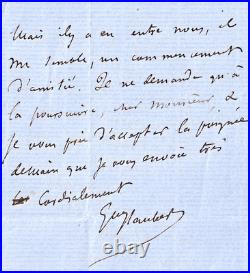 Mais il y a en entre nous, il
me semble, un commencement
d'amitié. Je ne demande qu'à
la poursuivre, cher Monsieur, &
je vous prie d'accepter la poignée
de main que je vous envoie très
Cordialement
Gve Flaubert